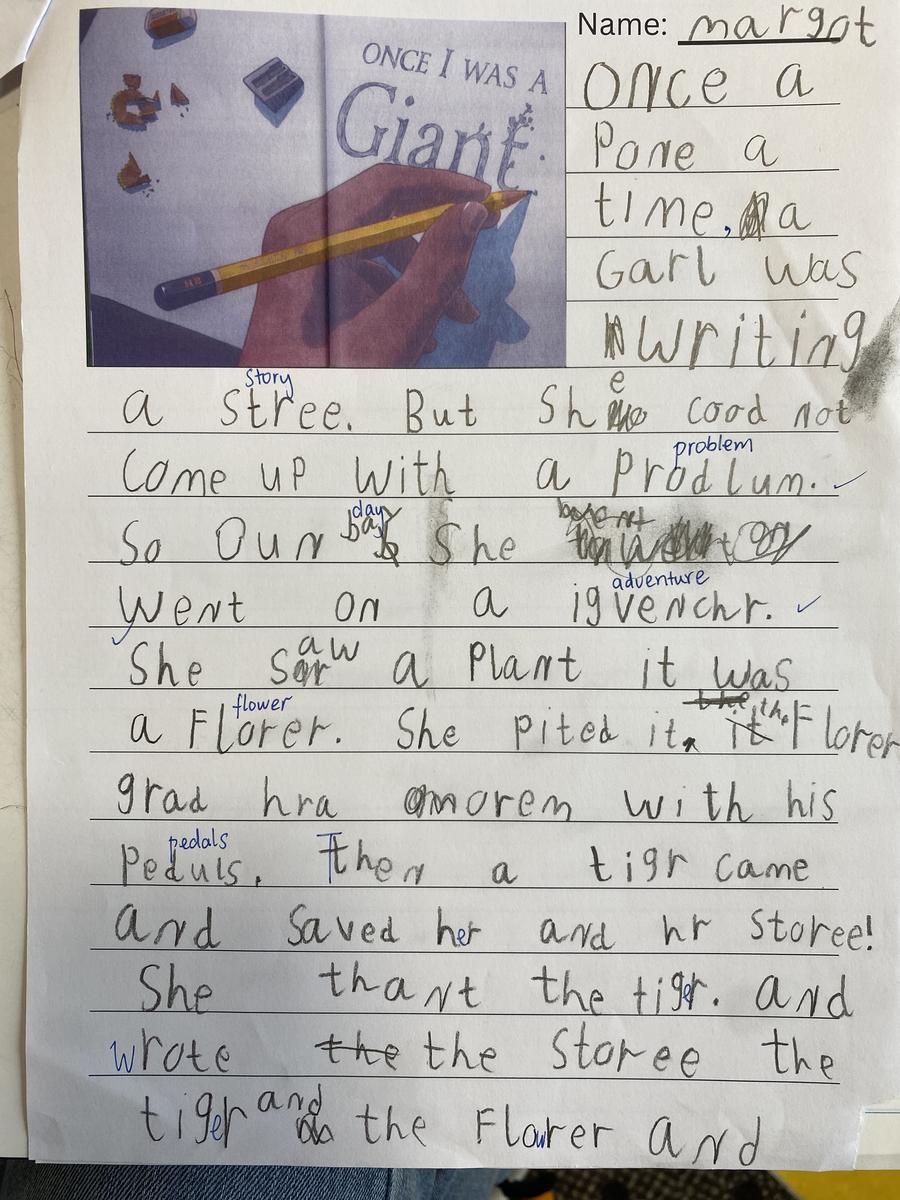 ONCE I WAS A
Giant
HB
Name: margot
once a
Pone a
time, a
Garl was
writing
story
e
a stree. But Sh cood not
problem
Come up with a Prodlum.
day
So Oun bay She
adventure
went on a igvenchr.
aw
She Sar a Plant it was
flower
the the
a Florer. She pited it. it Florer
grad hra omorem with his
pedals
Peduls. Then a tigr came
and saved her and hr storee!
She thant the tiger. and
wrote the the Storee the
and
tiger the Flourer and